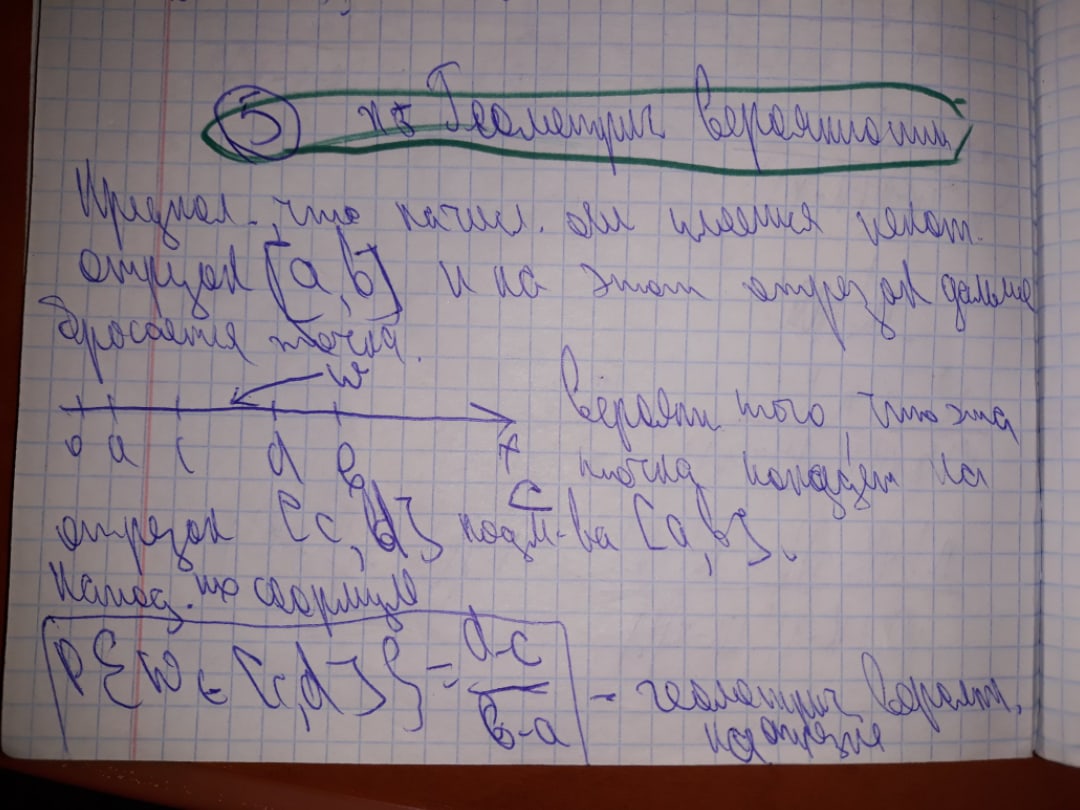 5 Геометрич вероятности
Предпол., что на числ. оси имеется некот.
отрезок [a,b] и на этот отрезок дальше
бросается точка.
w
0 a c d b x
Вероятн того, что эта
точка попадёт на
отрезок [c,d] ⊂ подм-ва [a,b].
наход. по формуле
P{w∈[c,d]} = d-c / b-a – геометрич вероятн.
на отрезке